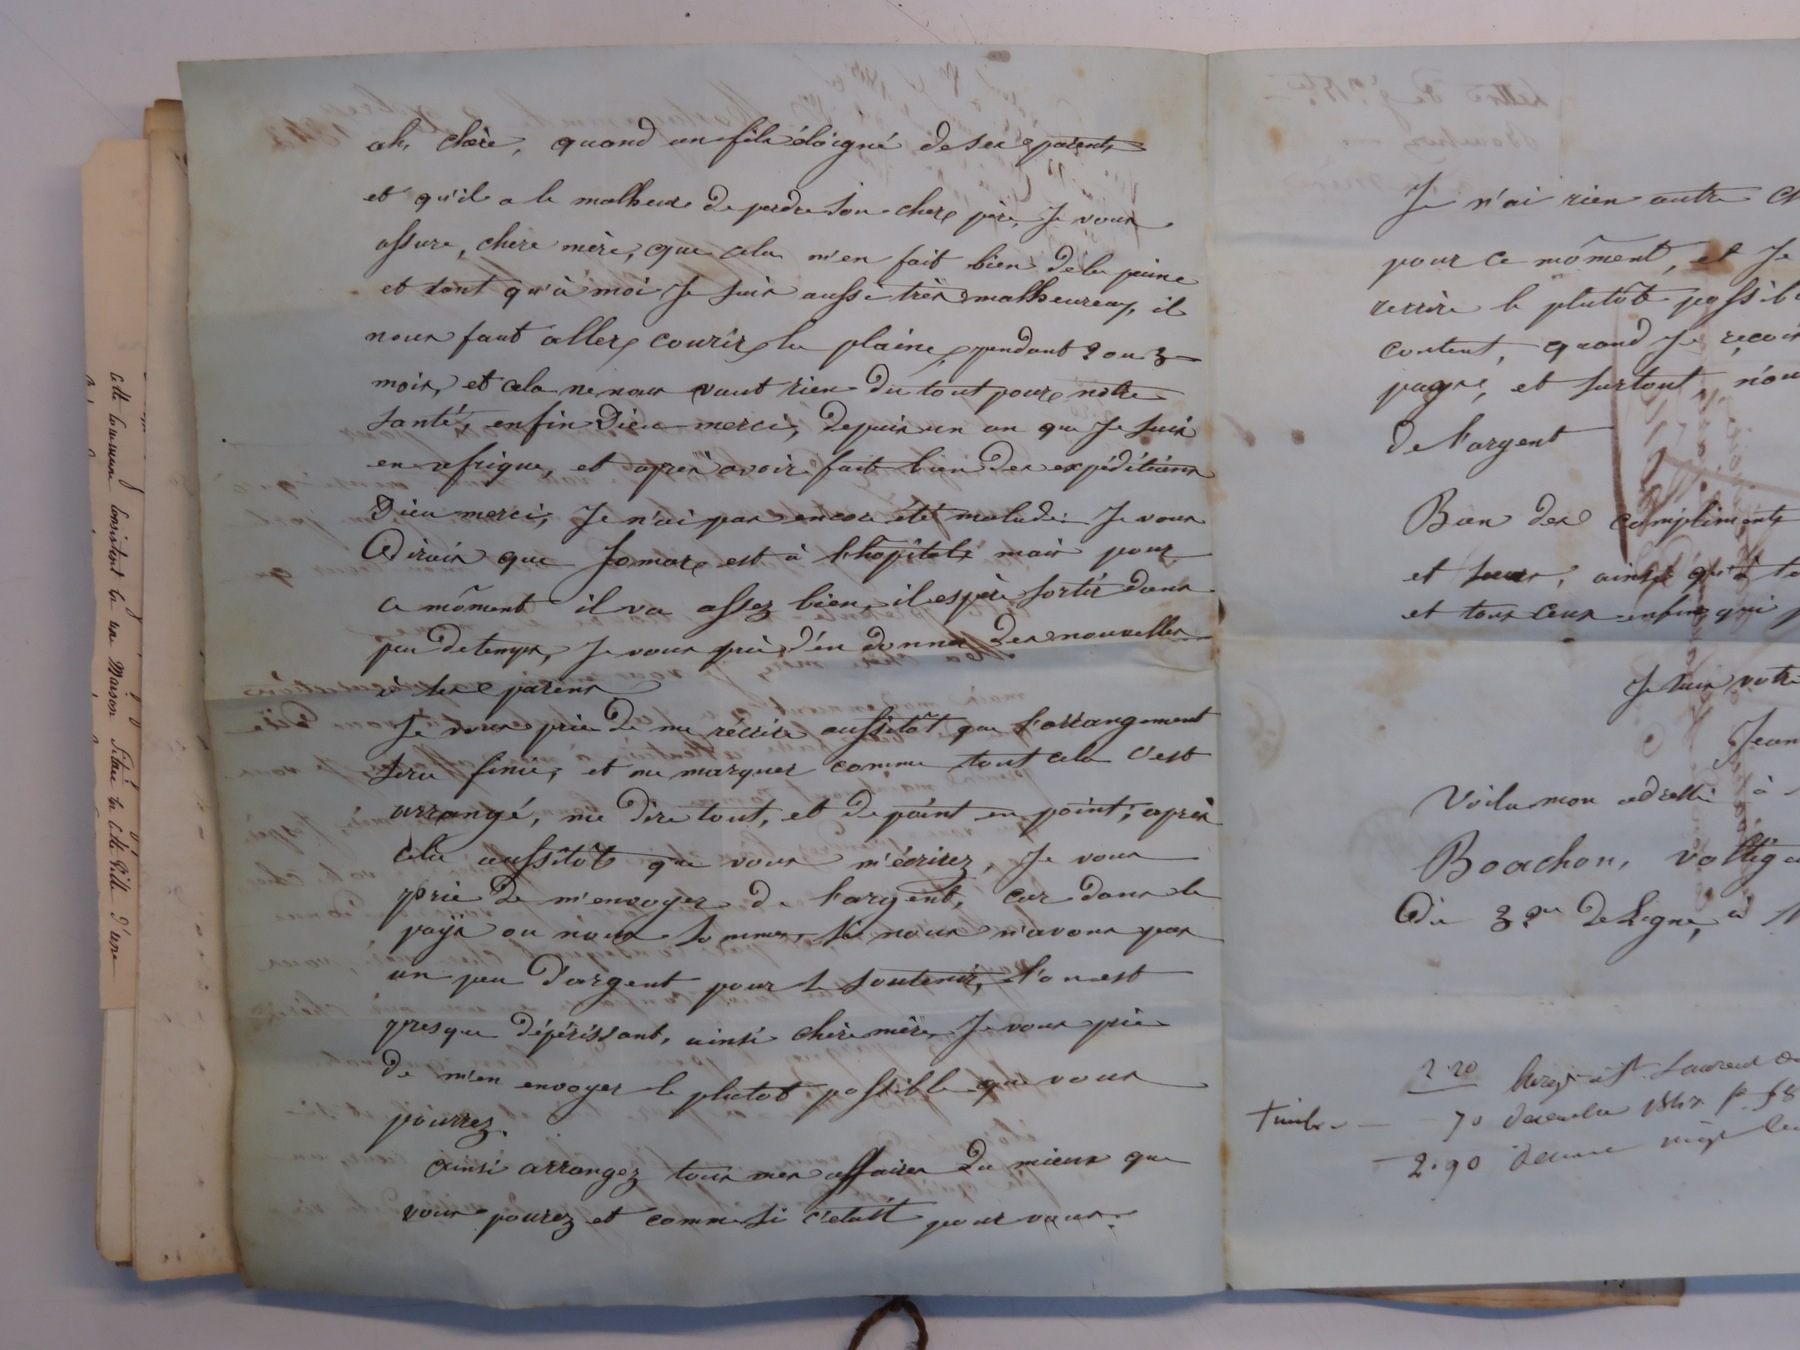 ah, chère, quand un fils éloigné de ses parents
et qu'il a le malheur de perdre son cher père, Je vous
assure, chère mère, que cela m'en fait bien de la peine
et tant qu'à moi Je suis aussi très malheureux, il
nous faut aller courir la plaine, pendant 2 ou 3
mois, et cela ne nous vaut rien du tout pour notre
santé, enfin Dieu merci, depuis un an que Je suis
en afrique, et après avoir fait bien des expéditions
Dieu merci, Je n'ai pas encore été malade. Je vous
dirais que Jomar est à l'hopital mais pour
ce môment il va assez bien, il espère sortir dans
peu de temps, Je vous prie d'en donner des nouvelles
à ses parens
Je vous prie de me récrire aussitôt que l'arrangement
sera finie, et me marquer comme tout cela c'est
arrangé, me dire tout, et de point en point; après
cela aussitôt que vous m'écrirez, Je vous
prie de m'envoyer de l'argent, car dans le
pays ou nous sommes, si nous n'avons pas
un peu d'argent pour se soutenir, l'on est
presque dépérissant, ainsi chère mère, Je vous prie
de m'en envoyer le plutot possible que vous
pourrez.
ainsi arrangez tous mes affaires du mieux que
vous pourez et comme si c'était pour vous.
Je n'ai rien autre
pour ce môment, et Je
récrire le plutôt
content, quand Je
pays, et surtout,
de l'argent
Bien des compliments
et soeur, ainsi qu'à
et tous ceux enfin qui
Je suis votre
Jean
Voila mon adresse à
Boachon,
du 3.me De Ligne, à
2.20 St. Laurent
timbre 70 décembre 1847
2.90
cette commune consistant en une Maison située en cette Ville d'une